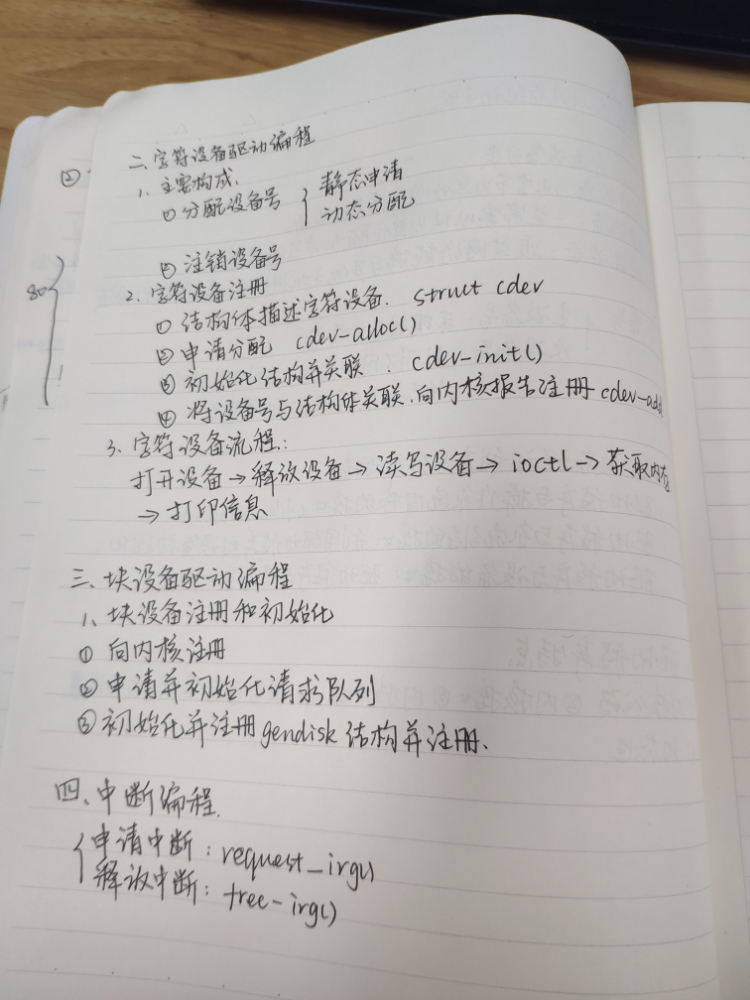 二、字符设备驱动编程
1、主要构成.
① 分配设备号 { 静态申请
动态分配
② 注销设备号
2. 字符设备注册
① 结构体描述字符设备. struct cdev
② 申请分配 cdev-alloc()
③ 初始化结构并关联. cdev-init()
④ 将设备号与结构体关联.向内核报告注册 cdev-add
3. 字符设备流程:
打开设备→释放设备→读写设备→ioctl→获取内存
→打印信息
三、块设备驱动编程
1、块设备注册和初始化
① 向内核注册
② 申请并初始化请求队列
③ 初始化并注册gendisk结构并注册、
四、中断编程.
{ 申请中断: request_irq()
释放中断: free-irq()
②
80